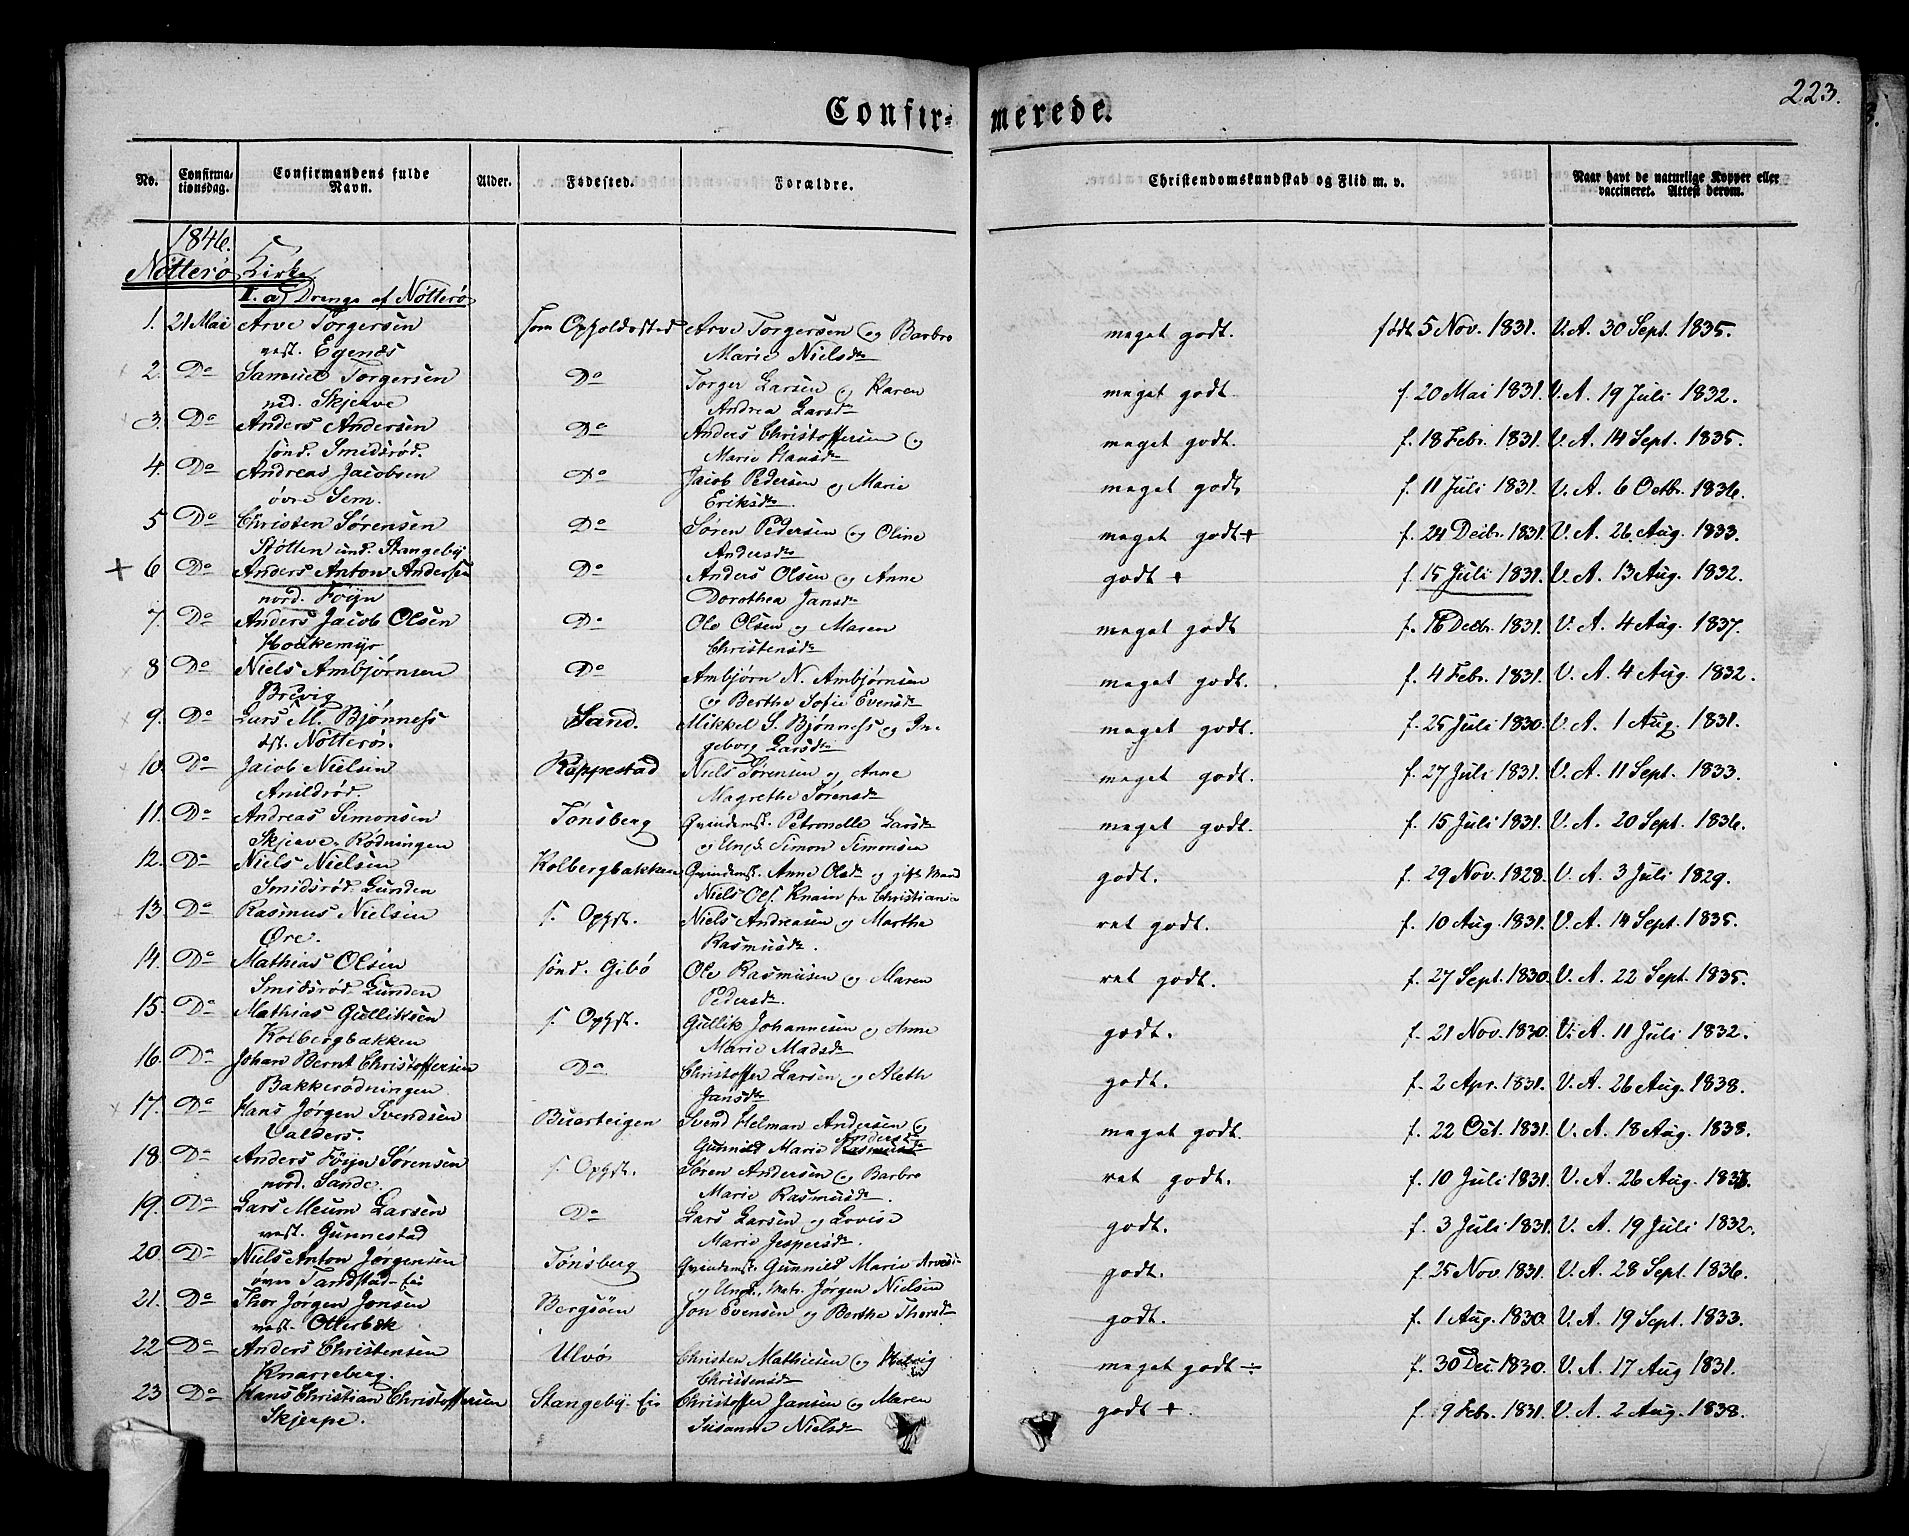 223.
Confir= merede.
No. Confirmationsdag. Confirmandens fulde Navn. Alder. Fødested. Forældre. Christendomskundskab og Flid m. v. Naar havt de naturlige Kopper eller vaccineret. Attest derom.
1846.
Nötterö Kirke
I. a) Drenge af Nötterö
1. 21 Mai Arve Torgersen som Opholdssted Arve Torgersen og Barbro meget godt. født 5 Nov. 1831. V. A. 30 Sept. 1835.
vest. Egenæs Marie Nielsdr
2. Do Samuel Torgersen Do Torger Larsen og Karen meget godt. f. 20 Mai 1831. V. A. 19 Juli 1832.
ned. Skjerve Andrea Larsdr
3. Do Anders Andersen Do Anders Christoffersen og meget godt. f. 18 Febr. 1831. V. A. 14 Sept. 1835.
sönd. Smidsröd. Marie Hansdr
4. Do Andreas Jacobsen Do Jacob Pedersen og Marie meget godt f. 11 Juli 1831. V. A. 6 Octbr. 1836.
övre Sem. Eriksdr
5 Do Christen Sörensen Do Sören Pedersen og Oline meget godt+ f. 24 Decbr. 1831. V. A. 26 Aug. 1833.
Stötten und. Stangeby Andersdr
+ 6 Do Anders Anton Andersen Do Anders Olsen og Anne godt + f. 15 Juli 1831. V. A. 13 Aug. 1832.
nord. Föyn Dorothea Jansdr
7. Do Anders Jacob Olsen Do Ole Olsen og Maren meget godt f. 16 Decbr. 1831. V. A. 4 Aug. 1837.
Houkemyr Christensdr
8 Do Niels Ambjörnsen Do Ambjörn N. Ambjörnsen meget godt. f. 4 Febr. 1831. V. A. 4 Aug. 1832.
Brevig og Berthe Sofie Evensdr
9. Do Lars M. Bjönness Sand. Mikkel S. Bjönness og In= meget godt. f. 25 Juli 1830. V. A. 1 Aug. 1831.
öst. Nötterö. geborg Larsdr
10. Do Jacob Nielsen Rappestad Niels Sörensen og Anne meget godt. f. 27 Juli 1831. V. A. 11 Sept. 1833.
Anildröd. Magrethe Sörensdr
11. Do Andreas Simonsen Tönsberg Qvindemst. Petronelle Larsdr meget godt. f. 15 Juli 1831. V. A. 20 Sept. 1836.
Skjerve Rödningen og Ungk. Simon Simonsen
12. Do Niels Nielsen Kolbergbakken Qvindemst. Anne Olsdr og gift Mand godt. f. 29 Nov. 1828. V. A. 3 Juli 1829.
Smidsröd Lunden Niels Ols. Knain fra Christiania
13. Do Rasmus Nielsen s. Ophst. Niels Andreasen og Martha ret godt. f. 10 Aug. 1831. V. A. 14 Sept. 1835.
Öre. Rasmusdr.
14. Do Mathias Olsen sönd. Gibö Ole Rasmusen og Maren ret godt. f. 27 Sept. 1830. V. A. 22 Sept. 1835.
Smidsröd Lunden Pedersdr.
15. Do Mathias Gulliksen s. Ophst. Gullik Johannesen og Anne godt. f. 21 Nov. 1830. V. A. 11 Juli 1832.
Kolbergbakken Marie Madsdr
16. Do Johan Bernt Christoffersen Do Christoffer Larsen og Aleth godt. f. 2 Apr. 1831. V. A. 26 Aug. 1838.
Bakkerödningen Jansdr
17. Do Hans Jörgen Svendsen Buerteigen Svend Helman Andersen og meget godt. f. 22 Oct. 1831. V. A. 18 Aug. 1838.
Valders. Gunnild Marie Andersdr Rasmusdr
18. Do Anders Föyn Sörensen s. Ophst. Sören Andersen og Barbro ret godt. f. 10 Juli 1831. V. A. 26 Aug.
nord. Sande. Marie Rasmusdr.
19. Do Lars Meum Larsen Do Lars Larsen og Lovise godt. f. 3 Juli 1831. V. A. 19 Juli 1832.
vest. Gunnestad Marie Jespersdr.
20. Do Niels Anton Jörgensen Tönsberg Qvindemst. Gunnild Marie Arvesdr godt. f. 25 Nov. 1831. V. A. 28 Sept. 1836.
övre Tandstad Eie og Ungk. Matr. Jörgen Nielsen
21. Do Thor Jörgen Jonsen Bergsöen Jon Evensen og Berthe Thorsdr godt. f. 1 Aug. 1830. V. A. 19 Sept. 1833.
vest. Otterbæk
22 Do Anders Christensen Ulvö Christen Mathiesen og Helvig meget godt ÷ f. 30 Dec 1830. V. A. 17 Aug 1831.
Knarreberg. Christensdr
23 Do Hans Christian Christoffersen Stangeby Eie Christoffer Jansen og Maren godt +. f. 9 Febr. 1831. V. A. 2 Aug. 1838.
Skjerpe. Susanne Nielsdr